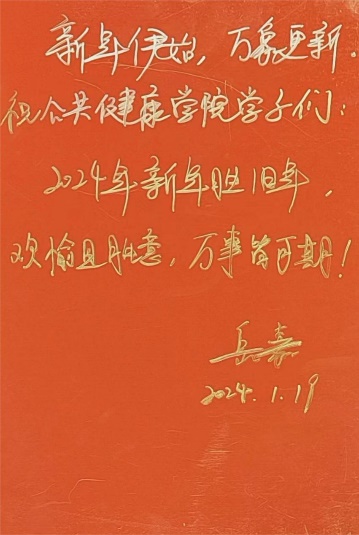 新年伊始，万象更新．
祝公共健康学院学子们：
2024年新年胜旧年，
欢愉且胜意，万事皆可期！
岳嘉
2024.1.19